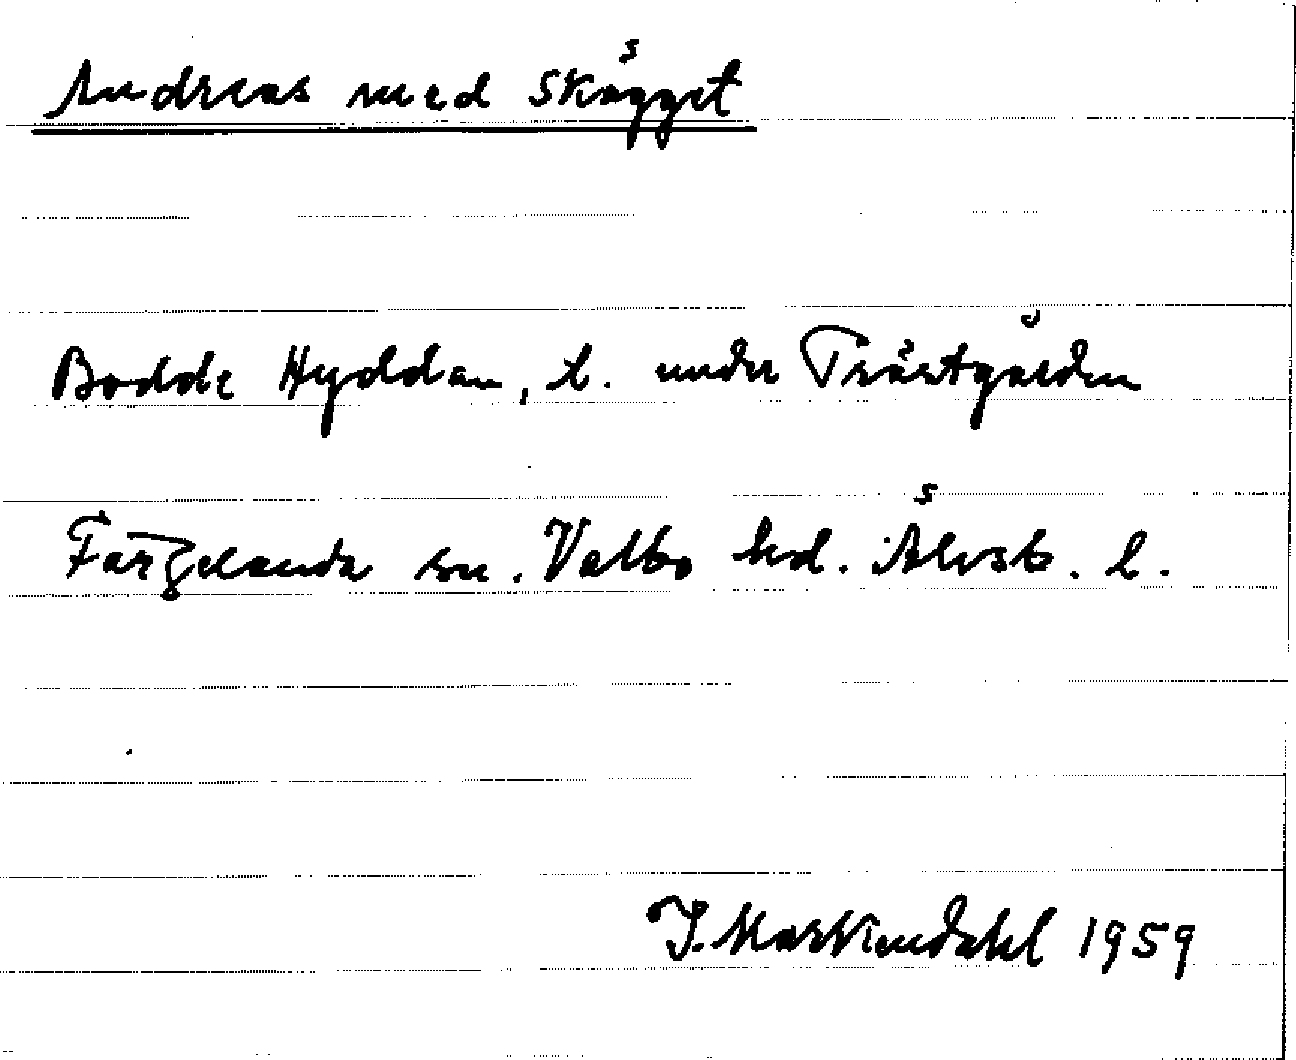 Andreas med Skägget
Bodde Hyddan, t. under Trästgården
Färgelanda sn. Valbo hd. Älvsb. l.
J. Markendahl 1959